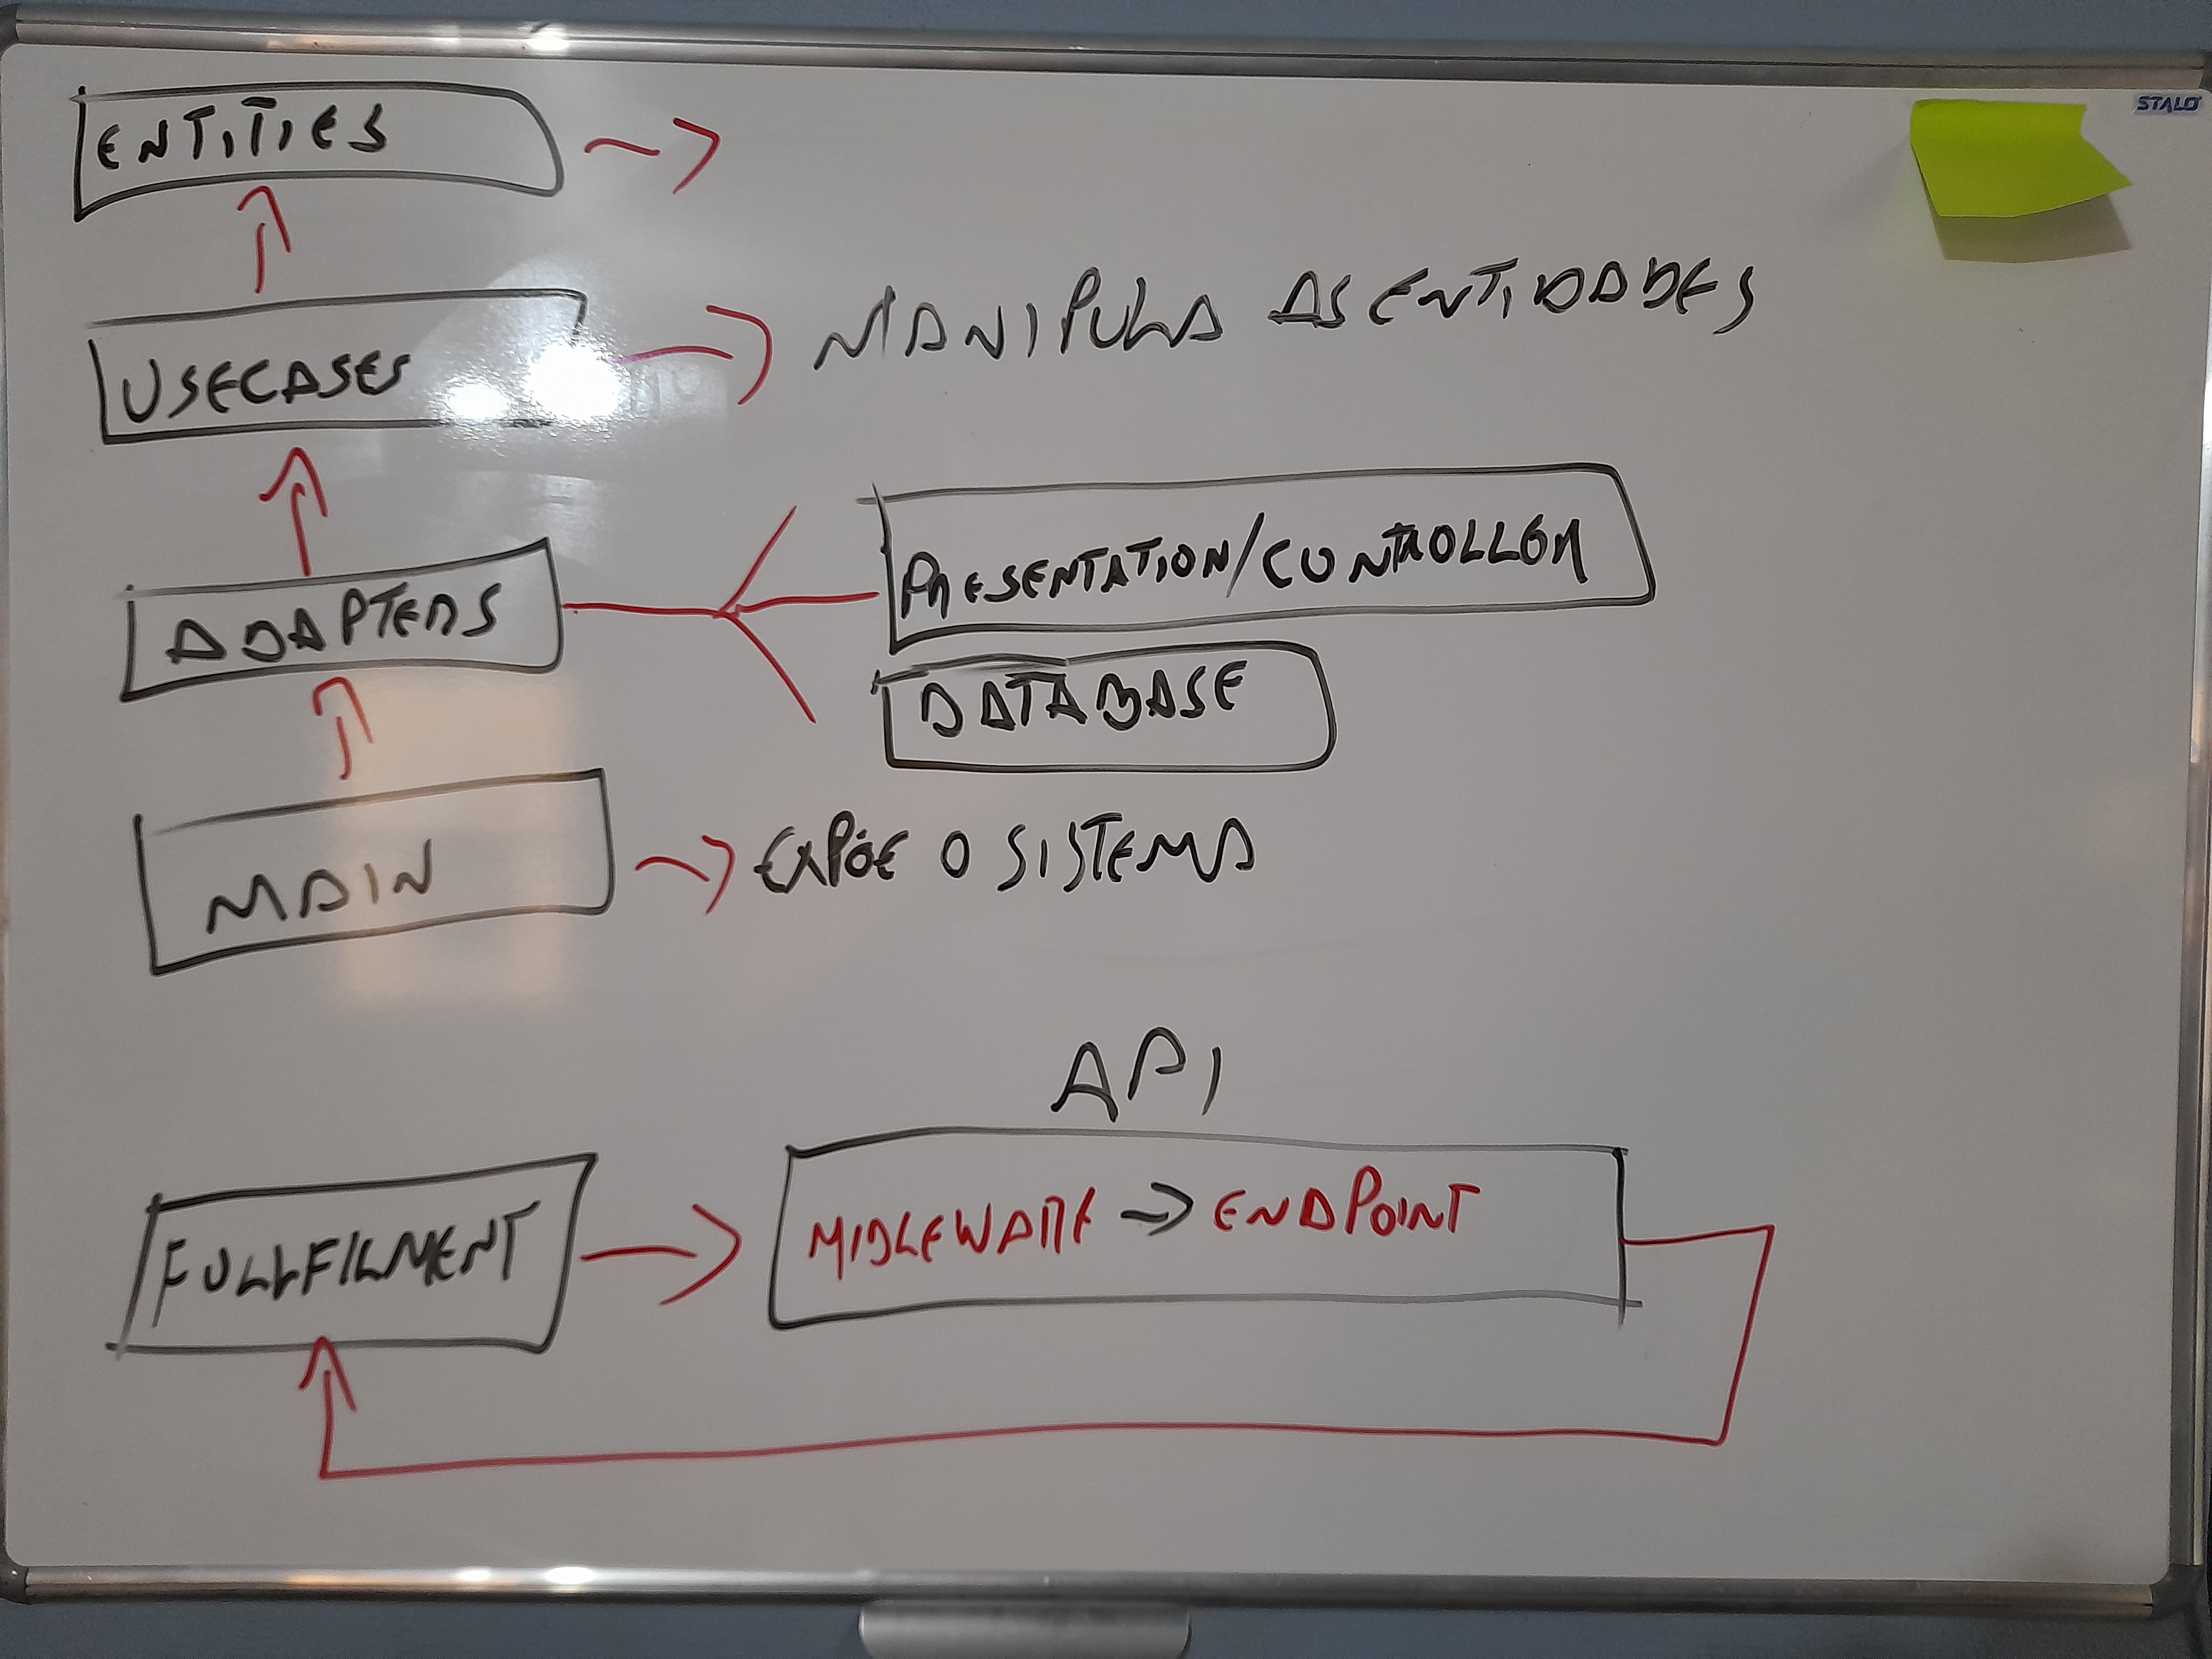 STALO
ENTITIES
USECASES
MANIPULA AS ENTIDADES
ADAPTERS
PRESENTATION/CONTROLLER
DATABASE
MAIN
EXPÕE O SISTEMA
API
FULLFILMENT
MIDLEWARE → ENDPOINT